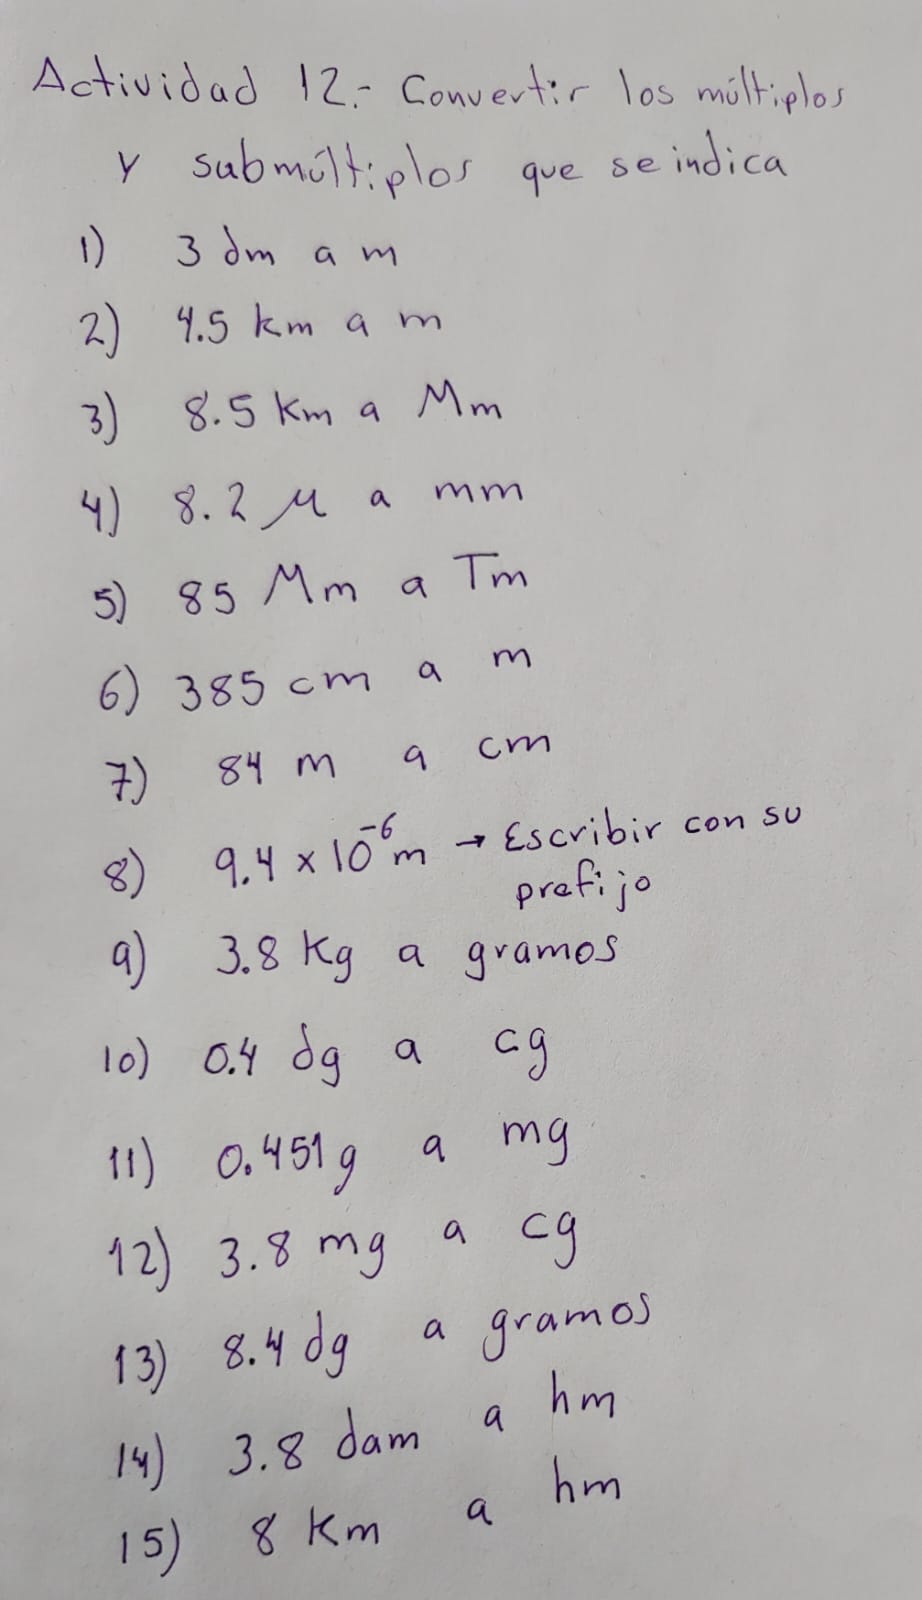 Actividad 12.- Convertir los múltiplos
y submúltiplos que se indica
1) 3 dm a m
2) 4.5 km a m
3) 8.5 km a Mm
4) 8.2 μ a mm
5) 85 Mm a Tm
6) 385 cm a m
7) 84 m a cm
8) 9.4 x 10⁻⁶ m → Escribir con su
prefijo
9) 3.8 Kg a gramos
10) 0.4 dg a cg
11) 0.451 g a mg
12) 3.8 mg a cg
13) 8.4 dg a gramos
14) 3.8 dam a hm
15) 8 Km a hm